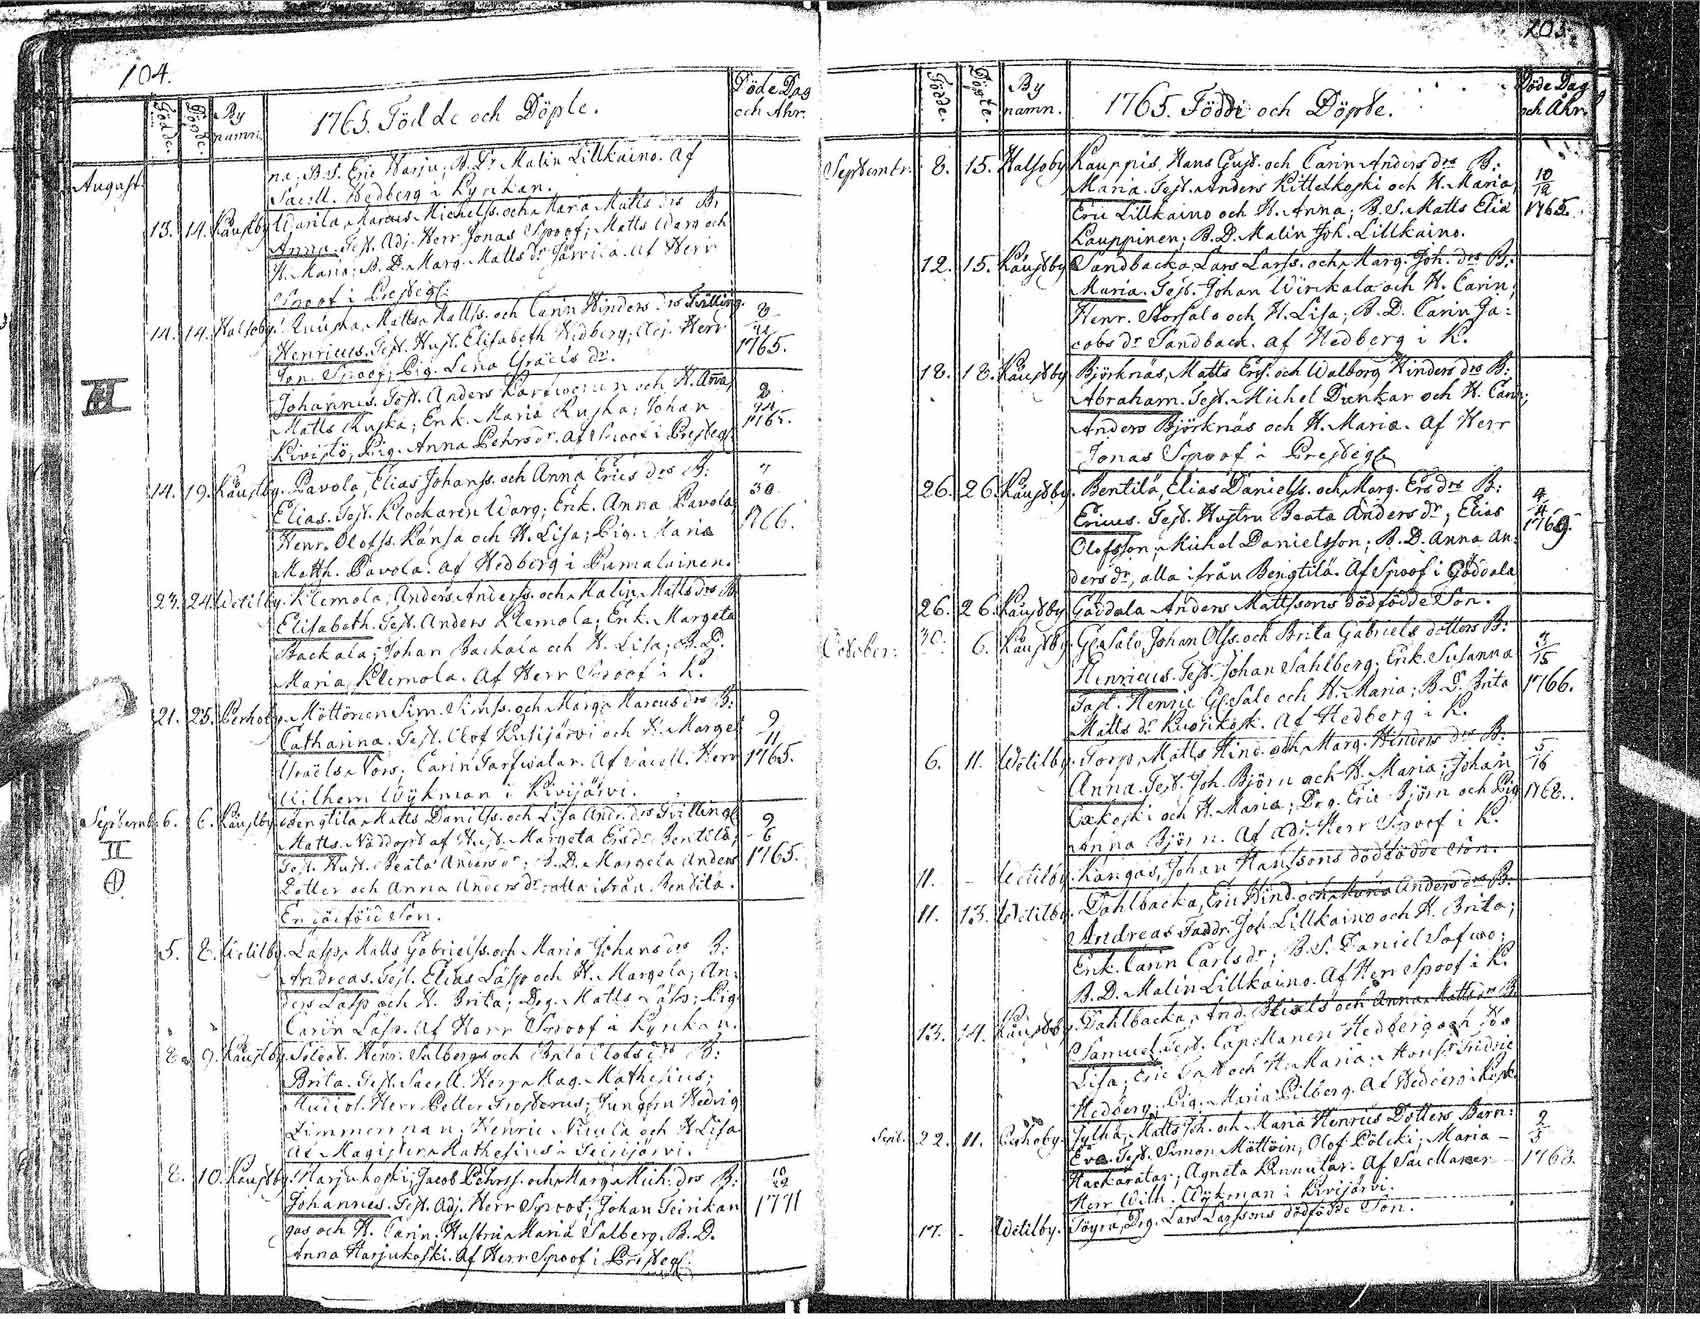 104.
Födde. Döpte. By namn. 1765. Födde och Döpte. Döde Dag och Åhr.
August.
na; B. S. Eric Harju; B. Dr Malin Lillkaino. Af
Sacell. Hedberg i Kyrkan.
13. 14. Kaustby. Marcus Michelss. och Maria Matts drs B:
Anna. Test. Adj. Herr Jonas Spoof; Matts Warg och
H. Maria; B. D. Marg. Matts dr Järvilä. Af Herr
Spoof i Presteg:
14. 14. Halsoby. Matts Mattss. och Carin Hinders drs Tvilling.
Henricus. Test. Hust. Elisabeth Hedberg; Adj. Herr
Jon. Spoof; Pig. Lena Israels dr.
1765.
II
Johannes. Test. Anders och H. Anna;
Matts Kujka; Enk. Maria Kujka; Johan
Kivistö; Pig. Anna Pehrs dr. Af Spoof i Presteg.
1765.
14. 19. Kaustby. Pavola, Elias Johanss. och Anna Erics drs B:
Elias. Test. Klockaren Warg; Enk. Anna Pavola;
Henr. Olofss. Känsä och H. Lisa; Pig. Maria
Matth. Pavola. Af Hedberg i Pumalainen.
30
1766.
23. 24. Wetilby. Klemola, Anders Anderss. och Malin Matts drs B.
Elisabeth. Test. Anders Klemola; Enk. Margeta
Backala; Johan Backala och H. Lisa; B. D.
Maria Klemola. Af Herr Spoof i K.
21. 25. Perhoby. Möttönen Sim. Simss. och Marg. Marcus drs B:
Catharina. Test. Olof Kusijärvi och H. Marget
Israëls Tors; Carin Af Sacell. Herr
Wilhem Wykman i Kivijärvi.
9
11
1765.
Septemb. 6. 6. Kaustby. Bengtila Matts Danilss. och Lisa And. drs Tvilling
II
Matts. Näddopt af Hust. Margeta Ers dr Bentilä;
Test. Hust. Beata Anders dr; B. D. Margeta Anders
Dotter och Anna Anders dr; alla ifrån Bentilä.
9
6
1765.
En dödföd Son.
5. 8. Wetilby. Läsp, Matts Gabrielss. och Maria Johans drs B:
Andreas. Test. Elias Läsp och H. Margeta; An-
ders Läsp och H. Brita; Drg. Matts Läsp; Pig.
Carin Läsp. Af Herr Spoof i Kyrkan.
8. 9. Kaustby. Soldat. Henr. Salbergs och Brita Olofs drs B:
Brita. Test. Sacell. Herr Mag. Mathesius;
Studios. Herr Petter Frosterus; Jungfru Hedvig
Zimmerman; Henric Nicula och H. Lisa
Af Magister Mathesius i Teirijärvi.
8. 10. Kaustby. Harjukoski, Jacob Pehrss. och Marg. Mich. drs B:
Johannes. Test. Adj. Herr Spoof; Johan Teirikan
gas och H. Carin; Hustru Maria Salberg. B. D.
Anna Harjukoski. Af Herr Spoof i Presteg.
10
22
1771
105.
Födde. Döpte. By namn. 1765. Födde och Döpte. Döde Dag och Åhr.
Septembr. 8. 15. Halsoby. Kauppis, Hans Gust. och Carin Anders drs B:
Maria. Test. Anders Kittelkoski och H. Maria;
Eric Lillkaino och H. Anna; B. S. Matts Eliæ
Kauppinen; B. D. Malin Joh. Lillkaino.
10
12
1765.
12. 15. Kaustby. Sandbacka, Lars Larss. och Marg. Joh. drs B:
Maria. Test. Johan Wirkala och H. Carin;
Henr. Storsalo och H. Lisa; B. D. Carin Ja-
cobs dr Sandback. Af Hedberg i K.
18. 18. Kaustby. Björknäs, Matts Erss. och Walborg Hinders drs B:
Abraham. Test. Michel Dunkar och H. Carin;
Anders Björknäs och H. Maria. Af Herr
Jonas Spoof i Presteg.
26. 26. Kaustby. Bentilä, Elias Danielss. och Marg. Ers drs B:
Ericus. Test. Hustru Beata Anders dr; Elias
Olofsson, Michel Danielsson; B. D. Anna An-
ders dr, alla ifrån Bengtilä. Af Spoof i Göddala
4
4
1769
26. 26. Kaustby. Göddala Anders Mattssons dödfödde Son.
October. 30. 6. Kaustby. Salo, Johan Olss. och Brita Gabriels dotters B:
Henricus. Test. Johan Sahlberg; Enk. Susanna
Henric Salo och H. Maria; B. D. Brita
Matts dr Kuorikosk. Af Hedberg i K.
3
15
1766.
6. 11. Wetilby. Torp, Matts Hind. och Marg. Hinders drs B:
Anna. Test. Joh. Björn och H. Maria; Johan
och H. Maria; Drg. Eric Björn och Pig
Anna Björn. Af Adj. Herr Spoof i K.
5
16
1768.
11. - Wetilby. Kangas, Johan Hanssons dödfödde Son.
11. 13. Wetilby. Dahlbacka, Eric Hind. och Maria Anders drs B:
Andreas. Faddr. Joh. Lillkaino och H. Brita;
Enk. Carin Carls dr; B. S. Daniel
B. D. Malin Lillkaino. Af Herr Spoof i K.
13. 14. Kaustby. Dahlbacka, And. och Anna Matts drs B.
Samuel. Test. Capellanen Hedberg och
Lisa; Eric och H. Maria; Monsr Fridric
Hedberg; Pig. Maria Pilberg. Af Hedberg i
Sept. 22. 11. Perhoby. Jylhä, Matts Joh. och Maria Henrics Dotters Barn:
Eva. Test. Simon Möttöin, Olof Pölcki; Maria
Hackarátar; Agneta Kinnutar. Af Sacellanen
Herr Wilh. Wykman i Kivijärvi.
2
3
1763.
17. - Wetilby. Töyrä, Drg. Lars Larssons dödfödde Son.